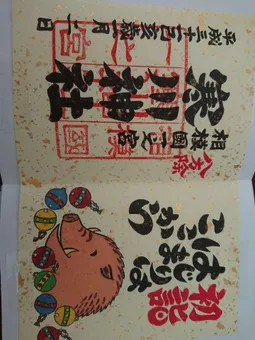 八方除
相模國一之宮
寒川神社
平成三十一己亥歳一月一日
初詣
はじまりは
ここから